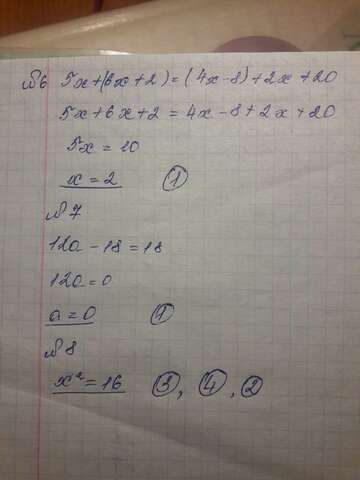 №6 5x+(6x+2)=(4x-8)+2x+20
5x+6x+2=4x-8+2x+20
5x=10
x=2 ①
№7
12a-18=18
12a=0
a=0 ①
№8
x²=16 ③, ④, ②